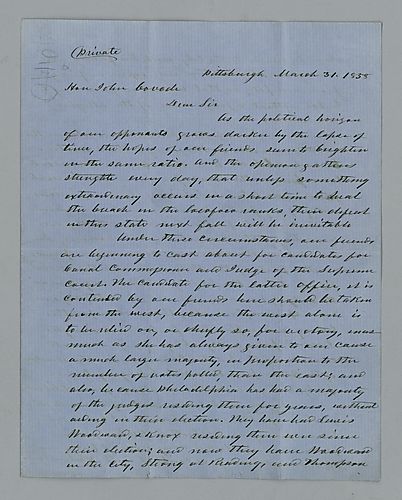 (Private
Pittsburgh March 31. 1858
Hon John Covode
Dear Sir
As the political horizon
of our opponants grows darker by the lapse of
time, the hopes of our friends seem to brighten
in the same ratio. And the opinion gathers
strenghte every day, that unless something
extraordinary occurs in a short time to heal
the breach in the locofoco ranks, their defeat
in this state next fall will be inevitable
Under these circumstances, our friends
are beginning to cast about for candidates for
Canal Commissioner and Judge of the Supreme
Court. The candidate for the latter office, it is
contended by our friends here should be taken
from the west, because the west alone is
to be relied on, or chiefly so, for a victory, inas-
much as she has always given to our cause
a much larger majority, in proportion to the
number of votes polled, than the east; and
also, because Philadelphia has had a majority
of the judges residing there for years, without
aiding in their election. They have had Lewis
Woodward, & Knox residing there ever since
their election; and now they have Woodward
in the City, Strong at Reading, and Thompson